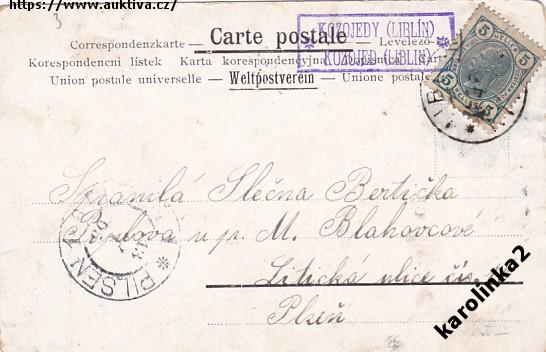 https://www.auktiva.cz/
3
Correspondenzkarte — Carte postale — Levelezö-
Korespondencni lístek Karta korespondencyjna Dopisnica Kart
Union postale universelle — Weltpostverein — Unione postale
KOZOJEDY (LIBLÍN)
KOZOJED (LIBLIN)
5 5
5 5
HELLER HELLER
Spanilá Slečna Bertička
u p. M. Blahovcové
Litická ulice čís.
Plzeň
PILSEN
karolinka2